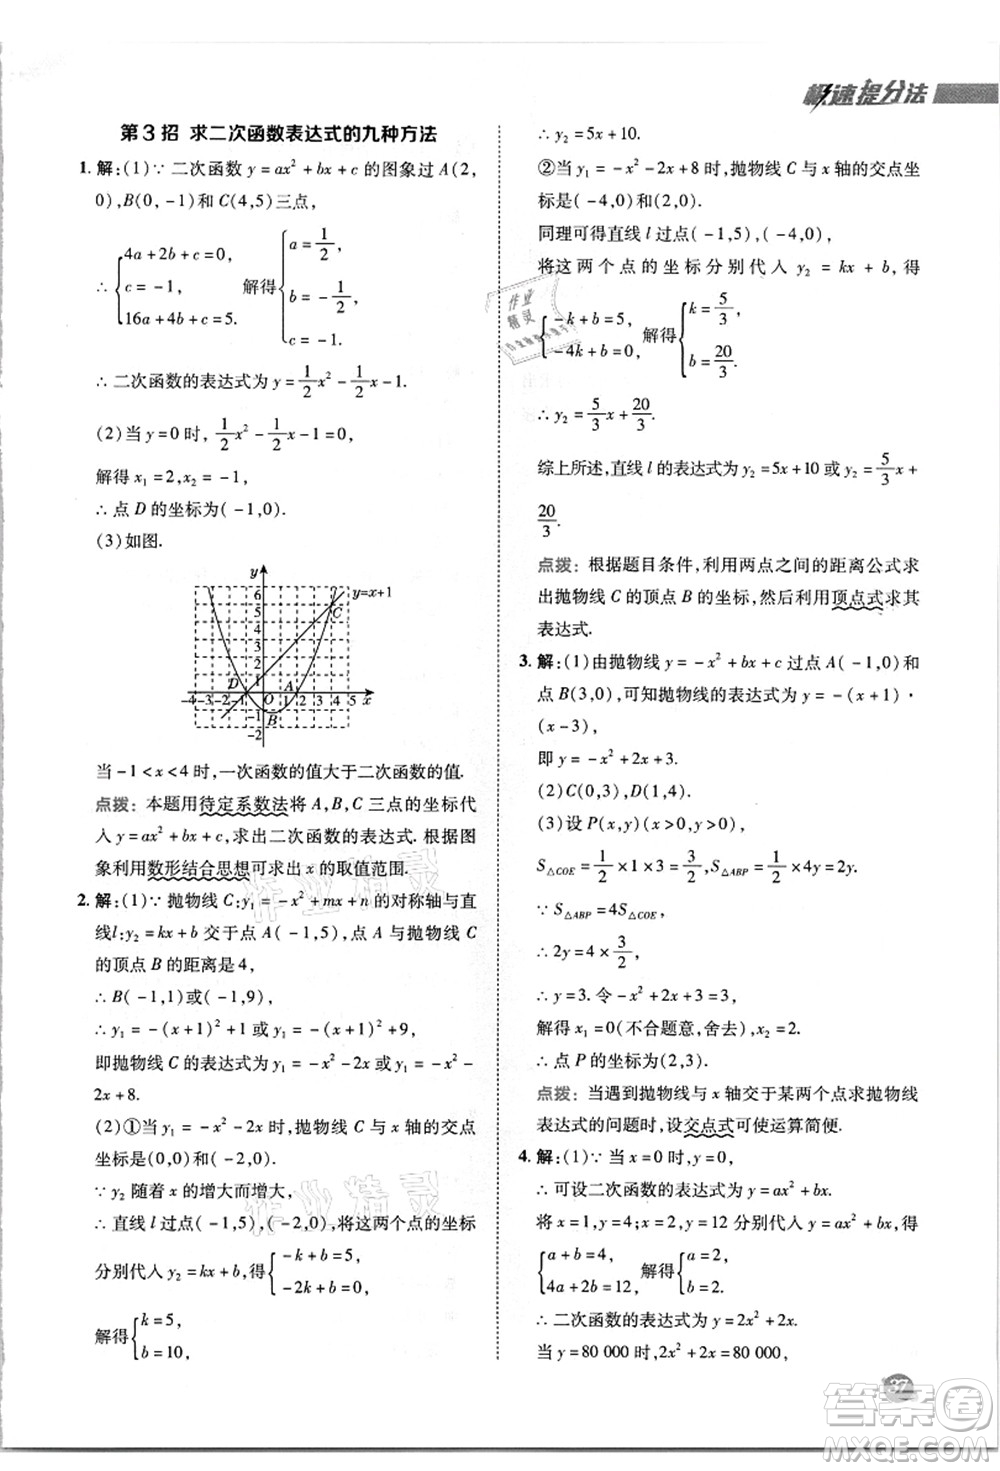 极速提分法
第3招 求二次函数表达式的九种方法
1. 解:(1)∵二次函数 y=ax²+bx+c 的图象过 A(2,
0),B(0,-1)和 C(4,5)三点,
∴ {4a+2b+c=0, c=-1, 16a+4b+c=0. 解得 {a=1/2, b=-1/2, c=-1.
∴二次函数的表达式为 y=1/2x²-1/2x-1.
(2)当 y=0 时,1/2x²-1/2x-1=0,
解得 x₁=2,x₂=-1,
∴点 D 的坐标为(-1,0).
(3)如图.
y
6
5
4
3
2
1
y=x+1
C
D
A
-4 -3 -2 -1 O 1 2 3 4 5 x
-1 B
-2
当 -1<x<4 时,一次函数的值大于二次函数的值.
点拨:本题用待定系数法将 A,B,C 三点的坐标代
入 y=ax²+bx+c,求出二次函数的表达式. 根据图
象利用数形结合思想可求出 x 的取值范围.
2. 解:(1)∵抛物线 C:y₁=-x²+mx+n 的对称轴与直
线 l:y₂=kx+b 交于点 A(-1,5),点 A 与抛物线 C
的顶点 B 的距离是 4,
∴B(-1,1)或(-1,9),
∴y₁=-(x+1)²+1 或 y₁=-(x+1)²+9,
即抛物线 C 的表达式为 y₁=-x²-2x 或 y₁=-x²-
2x+8.
(2)①当 y₁=-x²-2x 时,抛物线 C 与 x 轴的交点
坐标是(0,0)和(-2,0).
∵y₂ 随着 x 的增大而增大,
∴直线 l 过点(-1,5),(-2,0),将这两个点的坐标
分别代入 y₂=kx+b,得 {-k+b=5, -2k+b=0,
解得 {k=5, b=10,
∴y₂=5x+10.
②当 y₁=-x²-2x+8 时,抛物线 C 与 x 轴的交点坐
标是(-4,0)和(2,0).
同理可得直线 l 过点(-1,5),(-4,0),
将这两个点的坐标分别代入 y₂=kx+b,得
{-k+b=5, -4k+b=0, 解得 {k=5/3, b=20/3.
∴y₂=5/3x+20/3.
综上所述,直线 l 的表达式为 y₂=5x+10 或 y₂=5/3x+
20/3.
点拨:根据题目条件,利用两点之间的距离公式求
出抛物线 C 的顶点 B 的坐标,然后利用顶点式求其
表达式.
3. 解:(1)由抛物线 y=-x²+bx+c 过点 A(-1,0)和
点 B(3,0),可知抛物线的表达式为 y=-(x+1)·
(x-3),
即 y=-x²+2x+3.
(2)C(0,3),D(1,4).
(3)设 P(x,y)(x>0,y>0),
S△COE=1/2×1×3=3/2,S△ABP=1/2×4y=2y.
∵S△ABP=4S△COE,
∴2y=4×3/2,
∴y=3. 令 -x²+2x+3=3,
解得 x₁=0(不合题意,舍去),x₂=2.
∴点 P 的坐标为(2,3).
点拨:当遇到抛物线与 x 轴交于某两个点求抛物线
表达式的问题时,设交点式可使运算简便.
4. 解:(1)∵当 x=0 时,y=0,
∴可设二次函数的表达式为 y=ax²+bx.
将 x=1,y=4;x=2,y=12 分别代入 y=ax²+bx,得
{a+b=4, 4a+2b=12, 解得 {a=2, b=2,
∴二次函数的表达式为 y=2x²+2x.
当 y=80 000 时,2x²+2x=80 000,
37
作业精灵
作业精灵
作业精灵
答案圈
MXQE.COM